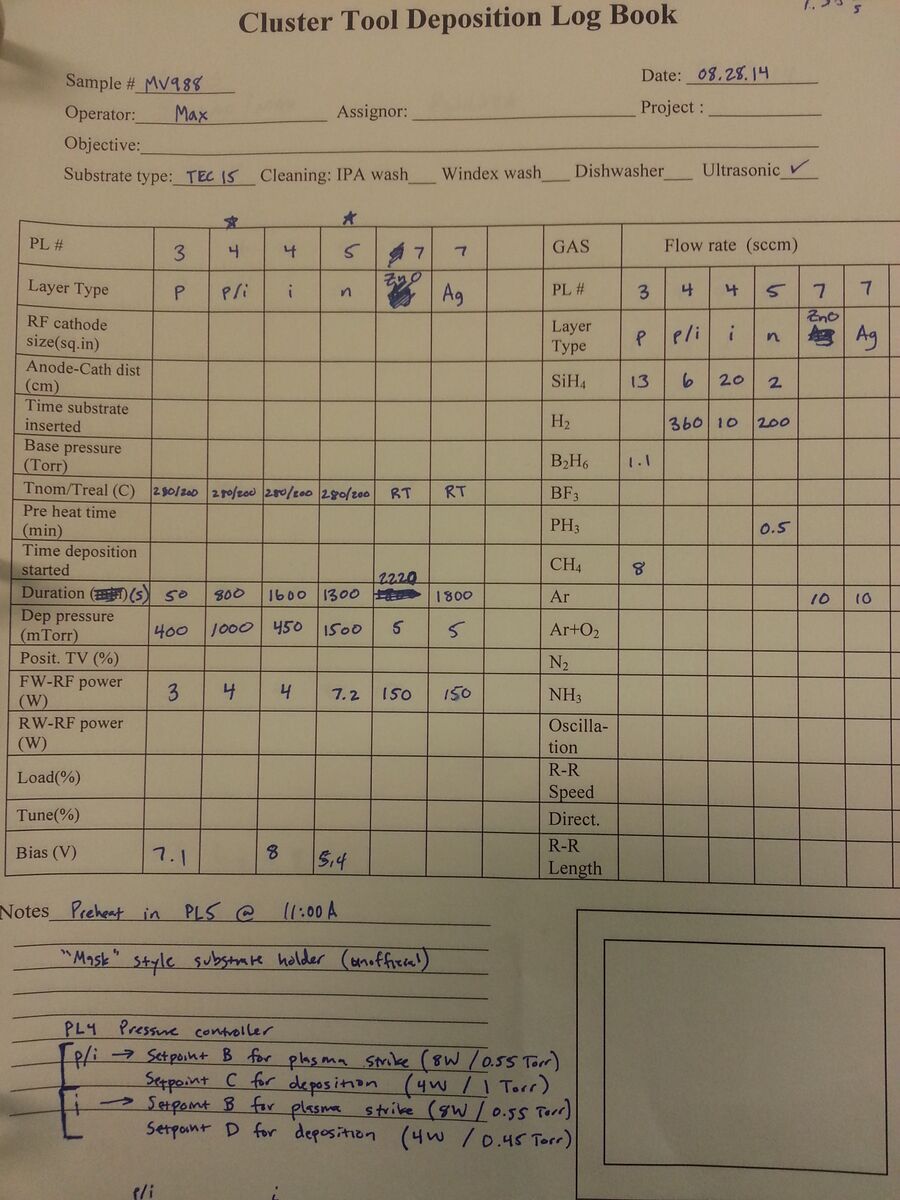 Cluster Tool Deposition Log Book
Sample # MV988 Date: 08.28.14
Operator: Max Assignor: Project :
Objective:
Substrate type: TEC 15 Cleaning: IPA wash Windex wash Dishwasher Ultrasonic ✓
★ ★
PL # 3 4 4 5 7 7
Layer Type P P/i i n ZnO Ag
RF cathode
size(sq.in)
Anode-Cath dist
(cm)
Time substrate
inserted
Base pressure
(Torr)
Tnom/Treal (C) 280/200 280/200 280/200 280/200 RT RT
Pre heat time
(min)
Time deposition
started
2220
Duration (s) 50 800 1600 1300 1800
Dep pressure
(mTorr) 400 1000 450 1500 5 5
Posit. TV (%)
FW-RF power
(W) 3 4 4 7.2 150 150
RW-RF power
(W)
Load(%)
Tune(%)
Bias (V) 7.1 8 5.4
GAS Flow rate (sccm)
PL # 3 4 4 5 7 7
Layer
Type P P/i i n ZnO Ag
SiH4 13 6 20 2
H2 360 10 200
B2H6 1.1
BF3
PH3 0.5
CH4 8
Ar 10 10
Ar+O2
N2
NH3
Oscilla-
tion
R-R
Speed
Direct.
R-R
Length
Notes Preheat in PL5 @ 11:00A
"Mask" style substrate holder (unofficial)
PL4 Pressure controller
p/i → Setpoint B for plasma strike (8W / 0.55 Torr)
Setpoint C for deposition (4W / 1 Torr)
i → Setpoint B for plasma strike (8W / 0.55 Torr)
Setpoint D for deposition (4W / 0.45 Torr)
p/i i